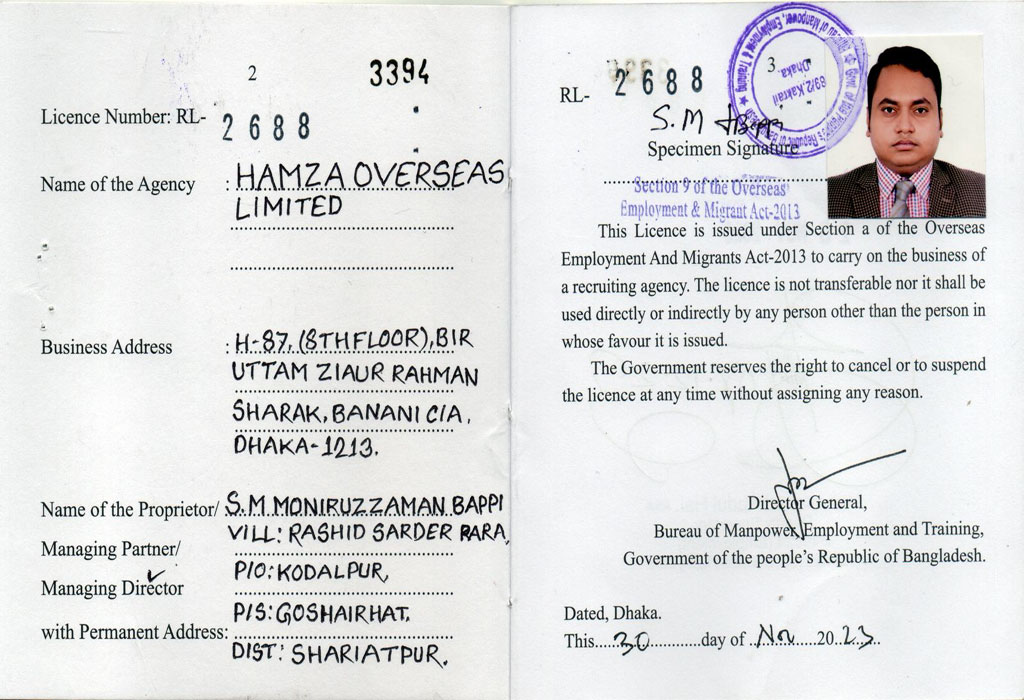 2
3394
Licence Number: RL- 2688
Name of the Agency : HAMZA OVERSEAS
LIMITED
Business Address : H-87, (8TH FLOOR), BIR
UTTAM ZIAUR RAHMAN
SHARAK, BANANI C/A,
DHAKA-1213.
Name of the Proprietor/ S.M. MONIRUZZAMAN BAPPI
VILL: RASHID SARDER PARA,
Managing Partner/
P/O: KODALPUR,
Managing Director
P/S: GOSHAIRHAT,
with Permanent Address:
DIST: SHARIATPUR.
3
RL- 2688
Govt. of the People's Republic of
Bureau of Manpower, Employment & Training
89/2, Kakrail
Dhaka.
S.M Bappi
Specimen Signature
Section 9 of the Overseas
Employment & Migrant Act-2013
This Licence is issued under Section a of the Overseas
Employment And Migrants Act-2013 to carry on the business of
a recruiting agency. The licence is not transferable nor it shall be
used directly or indirectly by any person other than the person in
whose favour it is issued.
The Government reserves the right to cancel or to suspend
the licence at any time without assigning any reason.
Director General,
Bureau of Manpower, Employment and Training,
Government of the people's Republic of Bangladesh.
Dated, Dhaka.
This......30............day of ..Nov....2023..